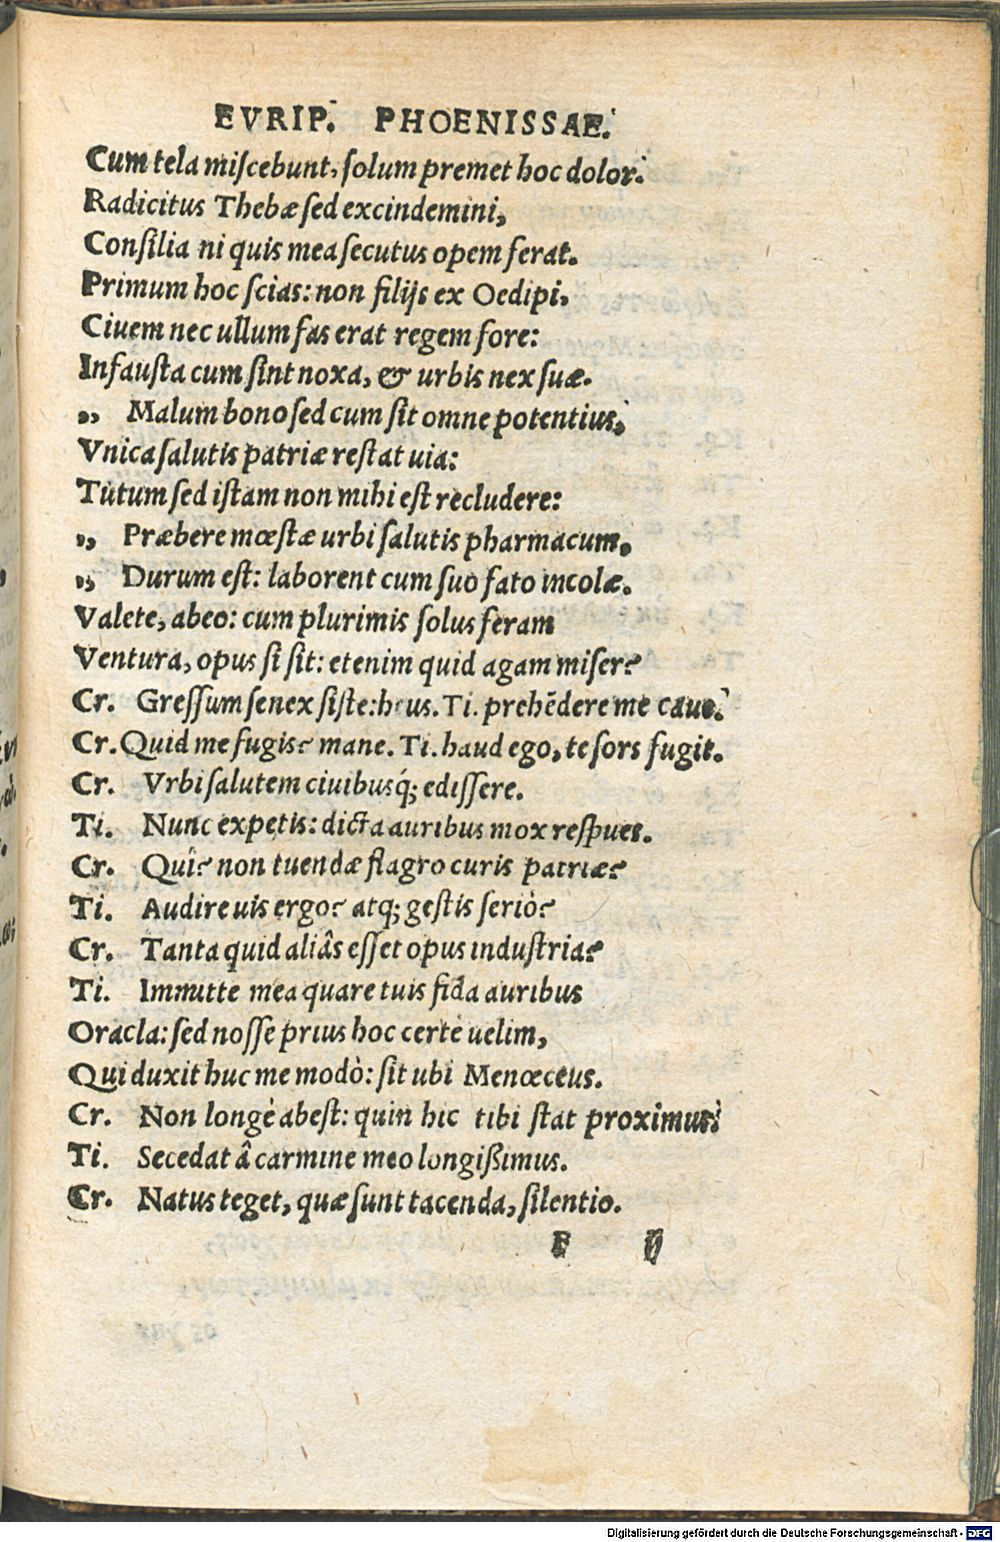 EVRIP. PHOENISSAE.
Cum tela miscebunt, solum premet hoc dolor.
Radicitus Thebæ sed excindemini,
Consilia ni quis mea secutus opem ferat.
Primum hoc scias: non filijs ex Oedipi,
Ciuem nec ullum fas erat regem fore:
Infausta cum sint noxa, & urbis nex suæ.
„ Malum bono sed cum sit omne potentius,
Vnica salutis patriæ restat uia:
Tutum sed istam non mihi est recludere:
„ Præbere mœstæ urbi salutis pharmacum.
„ Durum est: laborent cum suo fato incolæ.
Valete, abeo: cum plurimis solus feram
Ventura, opus si sit: etenim quid agam miser?
Cr. Gressum senex siste: heus. Ti. prehēdere me caue.
Cr. Quid me fugis? mane. Ti. haud ego, te sors fugit.
Cr. Vrbi salutem ciuibusq́; edissere.
Ti. Nunc expetis: dicta auribus mox respues.
Cr. Quî? non tuendæ flagro curis patriæ?
Ti. Audire uis ergo? atq; gestis seriò?
Cr. Tanta quid aliâs esset opus industria?
Ti. Immitte mea quare tuis fida auribus
Oracla: sed nosse prius hoc certè uelim,
Qui duxit huc me modò: sit ubi Menœceus.
Cr. Non longè abest: quin hic tibi stat proximus.
Ti. Secedat â carmine meo longißimus.
Cr. Natus teget, quæ sunt tacenda, silentio.
F ij
Digitalisierung gefördert durch die Deutsche Forschungsgemeinschaft - DFG